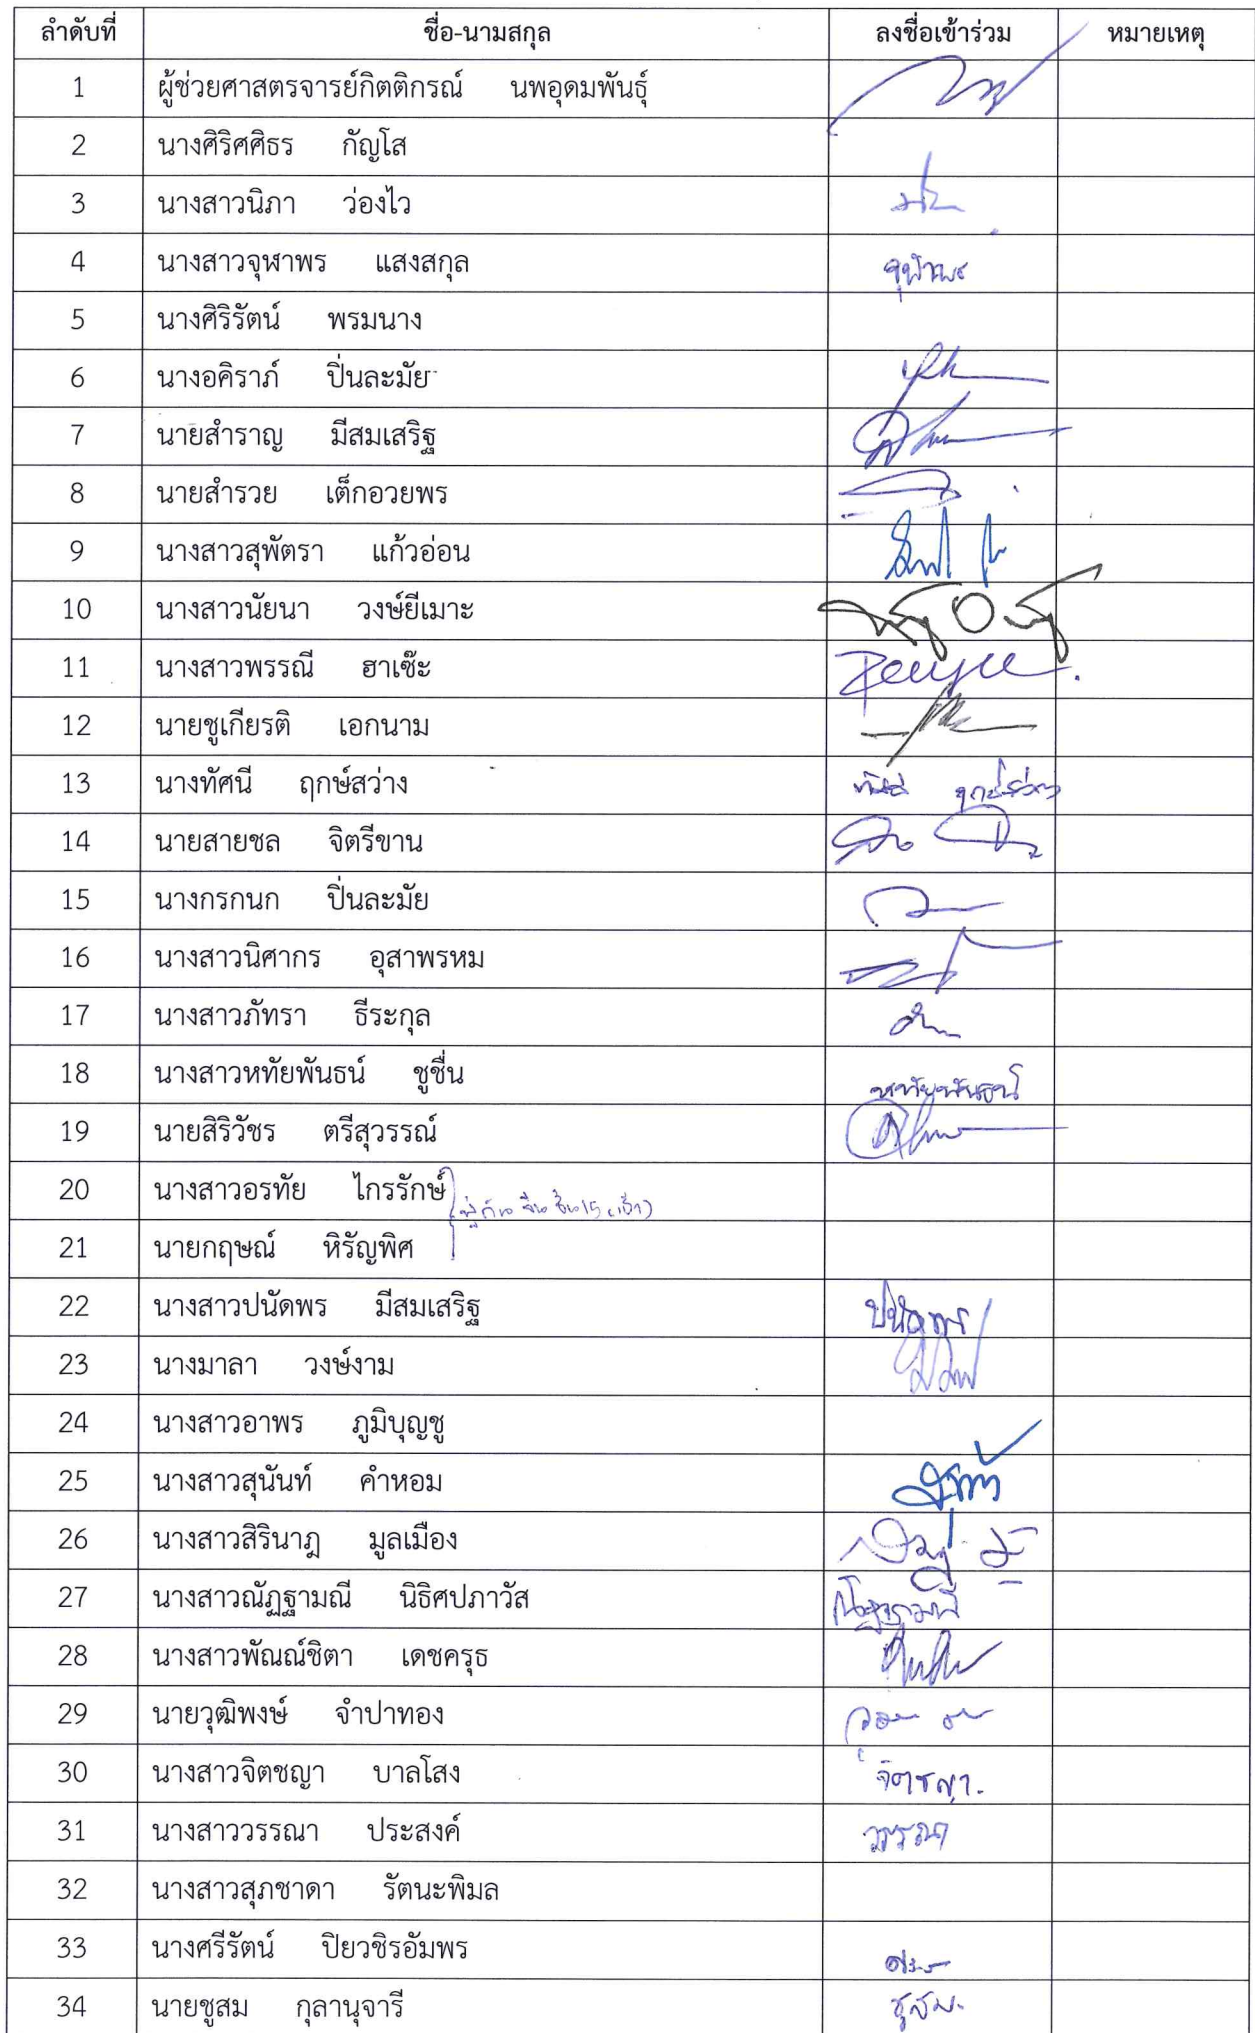 ลำดับที่ ชื่อ-นามสกุล ลงชื่อเข้าร่วม หมายเหตุ
1 ผู้ช่วยศาสตรจารย์กิตติกรณ์ นพอุดมพันธุ์
2 นางศิริศศิธร กัญโส
3 นางสาวนิภา ว่องไว
4 นางสาวจุฬาพร แสงสกุล จุฬาพร
5 นางศิริรัตน์ พรมนาง
6 นางอคิราภ์ ปิ่นละมัย
7 นายสำราญ มีสมเสริฐ
8 นายสำรวย เต็กอวยพร
9 นางสาวสุพัตรา แก้วอ่อน
10 นางสาวนัยนา วงษ์ยีเมาะ
11 นางสาวพรรณี ฮาเซ๊ะ
12 นายชูเกียรติ เอกนาม
13 นางทัศนี ฤกษ์สว่าง ทัศนี ฤกษ์สว่าง
14 นายสายชล จิตรีขาน
15 นางกรกนก ปิ่นละมัย
16 นางสาวนิศากร อุสาพรหม
17 นางสาวภัทรา ธีระกุล
18 นางสาวหทัยพันธน์ ชูชื่น หทัยพันธน์
19 นายสิริวัชร ตรีสุวรรณ์
20 นางสาวอรทัย ไกรรักษ์
21 นายกฤษณ์ หิรัญพิศ
22 นางสาวปนัดพร มีสมเสริฐ ปนัดพร
23 นางมาลา วงษ์งาม
24 นางสาวอาพร ภูมิบุญชู
25 นางสาวสุนันท์ คำหอม
26 นางสาวสิรินาฎ มูลเมือง
27 นางสาวณัฏฐามณี นิธิศปภาวัส ณัฏฐามณี
28 นางสาวพัณณ์ชิตา เดชครุธ
29 นายวุฒิพงษ์ จำปาทอง
30 นางสาวจิตชญา บาลโสง จิตชญา
31 นางสาววรรณา ประสงค์ วรรณา
32 นางสาวสุภชาดา รัตนะพิมล
33 นางศรีรัตน์ ปิยวชิรอัมพร
34 นายชูสม กุลานุจารี ชูสม